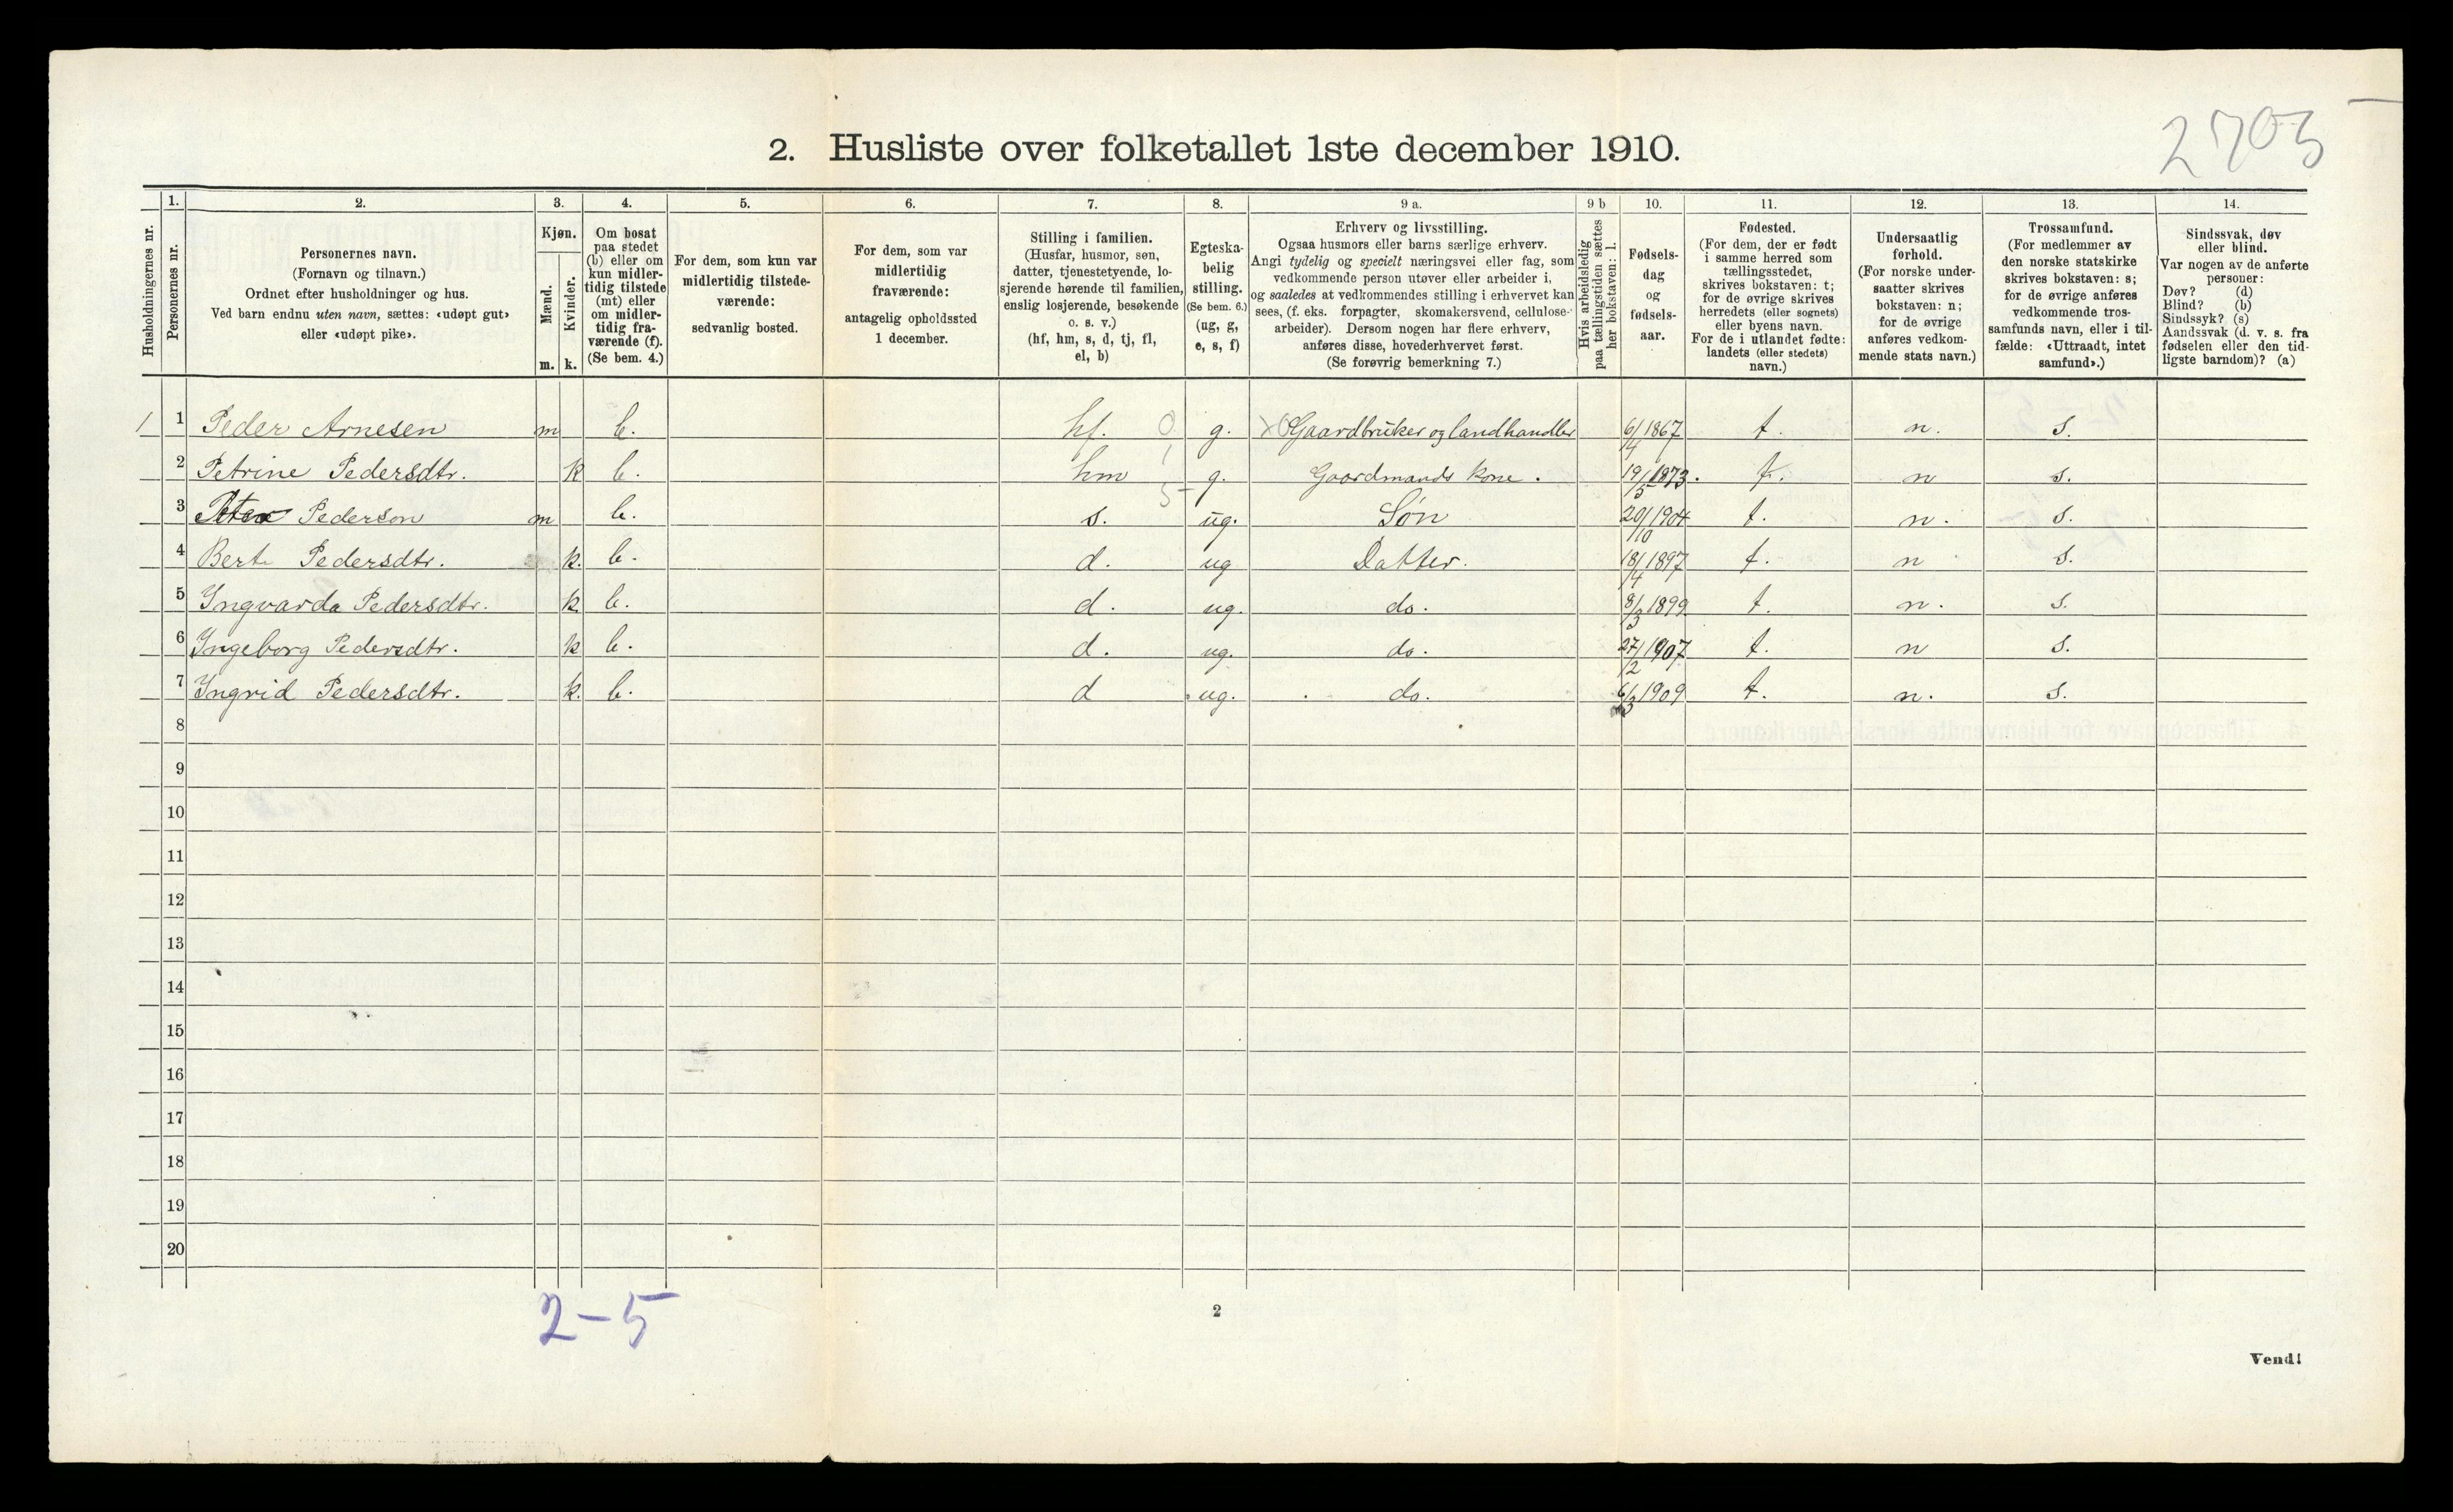 2703
2. Husliste over folketallet 1ste december 1910.
Husholdningernes nr.
1. Personernes nr.
2. Personernes navn.
(Fornavn og tilnavn.)
Ordnet efter husholdninger og hus.
Ved barn endnu uten navn, sættes: «udøpt gut»
eller «udøpt pike».
3. Kjøn.
Mænd. m.
Kvinder. k.
4. Om bosat
paa stedet
(b) eller om
kun midler-
tidig tilstede
(mt) eller
om midler-
tidig fra-
værende (f).
(Se bem. 4.)
5. For dem, som kun var
midlertidig tilstede-
værende:
sedvanlig bosted.
6. For dem, som var
midlertidig
fraværende:
antagelig opholdssted
1 december.
7. Stilling i familien.
(Husfar, husmor, søn,
datter, tjenestetyende, lo-
sjerende hørende til familien,
enslig losjerende, besøkende
o. s. v.)
(hf, hm, s, d, tj, fl,
el, b)
8. Egteska-
belig
stilling.
(Se bem. 6.)
(ug, g,
e, s, f)
9 a. Erhverv og livsstilling.
Ogsaa husmors eller barns særlige erhverv.
Angi tydelig og specielt næringsvei eller fag, som
vedkommende person utøver eller arbeider i,
og saaledes at vedkommendes stilling i erhvervet kan
sees, (f. eks. forpagter, skomakersvend, cellulose-
arbeider). Dersom nogen har flere erhverv,
anføres disse, hovederhvervet først.
(Se forøvrig bemerkning 7.)
9 b Hvis arbeidsledig
paa tællingstiden sættes
her bokstaven: l.
10. Fødsels-
dag
og
fødsels-
aar.
11. Fødested.
(For dem, der er født
i samme herred som
tællingsstedet,
skrives bokstaven: t;
for de øvrige skrives
herredets (eller sognets)
eller byens navn.
For de i utlandet fødte:
landets (eller stedets)
navn.)
12. Undersaatlig
forhold.
(For norske under-
saatter skrives
bokstaven: n;
for de øvrige
anføres vedkom-
mende stats navn.)
13. Trossamfund.
(For medlemmer av
den norske statskirke
skrives bokstaven: s;
for de øvrige anføres
vedkommende tros-
samfunds navn, eller i til-
fælde: «Uttraadt, intet
samfund».)
14. Sindssvak, døv
eller blind.
Var nogen av de anførte
personer:
Døv? (d)
Blind? (b)
Sindssyk? (s)
Aandssvak (d. v. s. fra
fødselen eller den tid-
ligste barndom)? (a)
1 1 Peder Arnesen m b. hf. 0 g. X0 Gaardbruker og landhandler 6/4 1867 t. n. s.
2 Petrine Pedersdtr. k b. hm 1 g. Gaardmands kone. 19/5 1873. t. n s.
3 Peder Pederson m b. s. 5 ug. Søn 20/10 1904 t. n. s.
4 Berte Pedersdtr. k. b. d. ug Datter. 18/4 1897 t. n s.
5 Ingvarda Pedersdtr. k b. d. ug. do. 8/3 1899 t. n. s.
6 Ingeborg Pedersdtr. k b. d. ug. do. 27/2 1907 t. n s.
7 Ingrid Pedersdtr. k. b. d ug. do. 6/3 1909 t. n. s.
8
9
10
11
12
13
14
15
16
17
18
19
20
2-5
2
Vend!